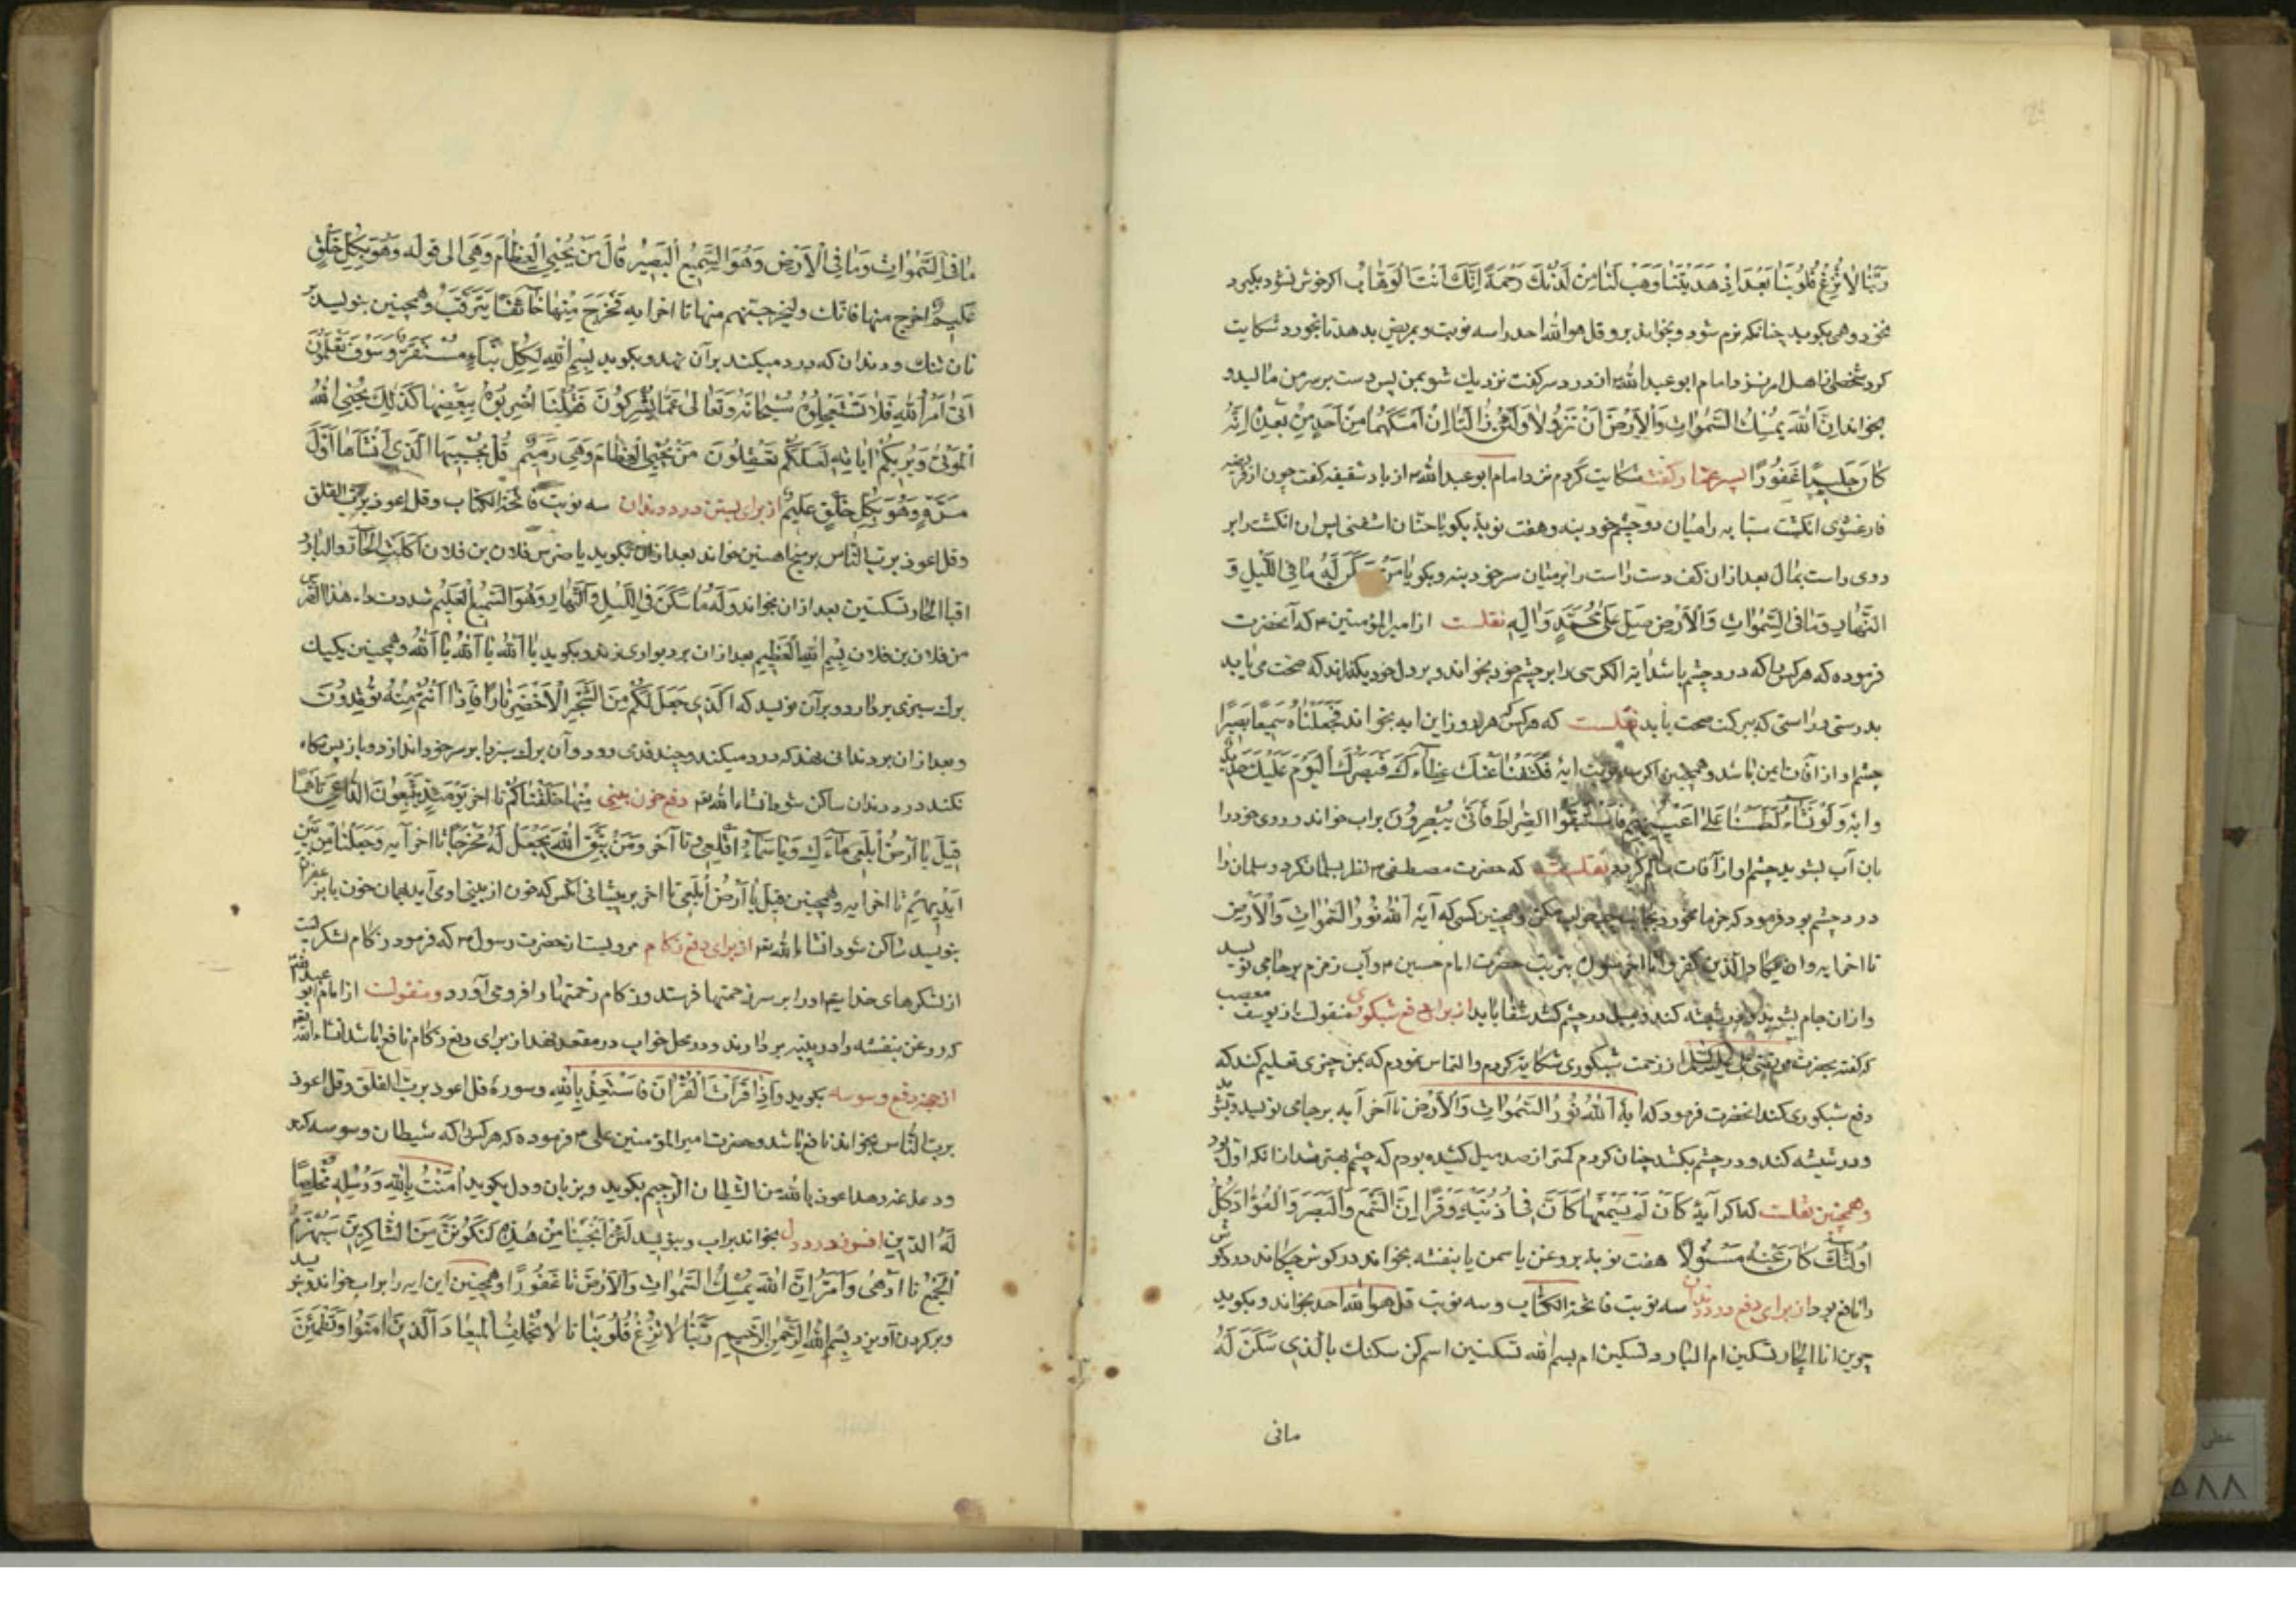 رَبَّنَا لَا تُزِغْ قُلُوبَنَا بَعْدَ اِذْ هَدَيْتَنَا وَهَبْ لَنَا مِنْ لَدُنْكَ رَحْمَةً اِنَّكَ اَنْتَ الْوَهَّابُ اکر خوش نشود بکیرد
نخود و همی بکوبید چنانکه نرم شود و بخواند برو قل هو الله احد را سه نوبت و بمریض بدهد تا بخورد شکایت
کرد شخصی از اهل امر نزد امام ابو عبد الله از درد سر کفت نزدیک شو بمن پس دست بر سر من مالید و
بخواند اِنَّ اللهَ يُمْسِكُ السَّمٰوَاتِ وَالْاَرْضَ اَنْ تَزُولَا وَلَئِنْ زَالَتَا اِنْ اَمْسَكَهُمَا مِنْ اَحَدٍ مِنْ بَعْدِهِ اِنَّهُ
كَانَ حَلِيمًا غَفُورًا پسر عمار کفت شکایت کردم نزد امام ابو عبد الله از باد شقیقه کفت چون از فریضه
فارغ شوی انکشت سبابه را میان دو چشم خود بنه و هفت نوبت بکو یا حنان اشفنی پس ان انکشت را بر
دوی راست بمال بعد از ان کف دست راست را بر میان سر خود بنه و بکو یا مَنْ سَكَنَ لَهُ مَا فِي اللَّيْلِ وَ
النَّهَارِ وَمَا فِي السَّمٰوَاتِ وَالْاَرْضِ صَلِّ عَلَى مُحَمَّدٍ وَاٰلِهِ نقلست از امیر المؤمنین که آنحضرت
فرموده که هر کس را که درد چشم باشد ایة الکرسی را بر چشم خود بخواند و بر دل خود بکذراند که صحت می یابد
بدرستی و راستی که ببرکت صحت یابد نقلست که هر کس هر روز این ایه بخواند فَجَعَلْنَاهُ سَمِيعًا بَصِيرًا
چشم او از آفات ایمن باشد و همچنین اکر سه نوبت ایه فَكَشَفْنَا عَنْكَ غِطَاءَكَ فَبَصَرُكَ الْيَوْمَ حَدِيدٌ
وایه وَلَوْ نَشَاءُ لَطَمَسْنَا عَلَى اَعْيُنِهِمْ فَاسْتَبَقُوا الصِّرَاطَ فَاَنَّى يُبْصِرُونَ بر اب خواند و روی خود را
بان آب بشوید چشم او از آفات سالم کردد نقلست که حضرت مصطفی نظر بسلمان کرد و سلمان را
درد چشم بود فرمود که خرما مخور و بجانب چپ خواب مکن و همچنین کسی که آیه اَللهُ نُورُ السَّمٰوَاتِ وَالْاَرْضِ
تا اخر ایه و ان یکاد الذین کفروا تا اخر سوره بتربت حضرت امام حسین و آب زمزم بر جامی نویسد
و از ان جام بشوید و در شیشه کند و بمیل در چشم کشد شفا یابد از برای دفع شبکوری منقولست از یوسف
که کفت بحضرت از زحمت شبکوری شکایت کردم و التماس نمودم که بمن چیزی تعلیم کند که
دفع شبکوری کند انحضرت فرمود که ایه اَللهُ نُورُ السَّمٰوَاتِ وَالْاَرْضِ تا آخر آیه بر جامی نویسد و بشوید
و در شیشه کند و در چشم بکشد چنان کردم کمتر از صد میل کشیده بودم که چشم بهتر شد از انکه اول بود
و همچنین نقلست که اکر آیه كَاَنْ لَمْ يَسْمَعْهَا كَاَنَّ فِي اُذُنَيْهِ وَقْرًا اِنَّ السَّمْعَ وَالْبَصَرَ وَالْفُؤَادَ كُلُّ
اُولٰئِكَ كَانَ عَنْهُ مَسْئُولًا هفت نوبت بر روغن یاسمن یا بنفشه بخواند در کوش چکاند درد کوش
را نافع بود از برای دفع درد دندان سه نوبت فاتحة الکتاب و سه نوبت قل هو الله احد بخواند و بکوید
انا الحار تسکین ام البارد تسکین ام بسم الله تسکنین اسکن سکنتک بالذی سَكَنَ لَهُ
مافی
مَا فِي السَّمٰوَاتِ وَمَا فِي الْاَرْضِ وَهُوَ السَّمِيعُ الْبَصِيرُ قَالَ مَنْ يُحْيِي الْعِظَامَ وَهِيَ الی قوله وَهُوَ بِكُلِّ خَلْقٍ
عَلِيمٌ اخرج منها فانک ولنخرجنهم منها تا اخر ایه فَخَرَجَ مِنْهَا خَائِفًا يَتَرَقَّبُ و همچنین بنویسد بر
نان تنک و دندان که درد میکند بر آن نهد و بکوید بِسْمِ اللهِ لِكُلِّ نَبَاءٍ مُسْتَقَرٌّ وَسَوْفَ تَعْلَمُونَ
اَتَى اَمْرُ اللهِ فَلَا تَسْتَعْجِلُوهُ سُبْحَانَهُ وَتَعَالَى عَمَّا يُشْرِكُونَ فَقُلْنَا اضْرِبُوهُ بِبَعْضِهَا كَذٰلِكَ يُحْيِي اللهُ
الْمَوْتَى وَيُرِيكُمْ اٰيَاتِهِ لَعَلَّكُمْ تَعْقِلُونَ مَنْ يُحْيِي الْعِظَامَ وَهِيَ رَمِيمٌ قُلْ يُحْيِيهَا الَّذِي اَنْشَاَهَا اَوَّلَ
مَرَّةٍ وَهُوَ بِكُلِّ خَلْقٍ عَلِيمٌ از برای بستن درد دندان سه نوبت فاتحة الکتاب و قل اعوذ برب الفلق
و قل اعوذ برب الناس بر میخ اهنین خواند بعد از ان بکوید یا ضرس فلان بن فلان اکلت الحار والبارد
افبالحار تسکنین بعد از ان بخواند وَلَهُ مَا سَكَنَ فِي اللَّيْلِ وَالنَّهَارِ وَهُوَ السَّمِيعُ الْعَلِيمُ شددت داء هذا الضرس
من فلان بن فلان بِسْمِ اللهِ الْعَظِيمِ بعد از ان بر دیواری زند و بکوید یا اَللهُ یا اَللهُ یا اَللهُ و همچنین یکبیک
برک سبزی بردارد و بر آن نویسد که اَلَّذِي جَعَلَ لَكُمْ مِنَ الشَّجَرِ الْاَخْضَرِ نَارًا فَاِذَا اَنْتُمْ مِنْهُ تُوقِدُونَ
و بعد از ان بر دندانی نهد که درد میکند و چند قدمی رود و آن برک سبز را بر سر خود اندازد و باز پس نکاه
نکند درد دندان ساکن شود انشاء الله تعالی دفع خون بینی مِنْهَا خَلَقْنَاكُمْ تا اخر يَوْمَئِذٍ يَتَّبِعُونَ الدَّاعِيَ تا هَمْسًا
قِيلَ يَا اَرْضُ ابْلَعِي مَاءَكِ وَيَا سَمَاءُ اَقْلِعِي تا آخر وَمَنْ يَتَّقِ اللهَ يَجْعَلْ لَهُ مَخْرَجًا تا اخر آیه وَجَعَلْنَا مِنْ بَيْنِ
اَيْدِيهِمْ تا اخر ایه و همچنین قِيلَ يَا اَرْضُ ابْلَعِي تا اخر بر پیشانی انکس که خون از بینی او می آید بهمان خون یا بزعفران
بنویسد ساکن شود انشاء الله تعالی از برای دفع زکام مرویست از حضرت رسول که فرمود زکام لشکریست
از لشکرهای خدا که او را بر سر زحمتها فرستد و زکام زحمتها را فرو می آورد و منقولست از امام ابو عبد الله
که روغن بنفشه را در پنبه بردارند و در محل خواب در مقعد نهد از برای دفع زکام نافع باشد انشاء الله تعالی
از جهة دفع وسوسه بکوید وَاِذَا قَرَاْتَ الْقُرْاٰنَ فَاسْتَعِذْ بِاللهِ و سورهٔ قل اعوذ برب الفلق و قل اعوذ
برب الناس بخواند نافع باشد و حضرت امیر المؤمنین علی فرموده که هر کس را که شیطان وسوسه کند
اعوذ بالله من الشیطان الرجیم بکوید و بزبان و دل بکوید اٰمَنْتُ بِاللهِ وَرُسُلِهِ مُخْلِصًا
لَهُ الدّین افسون درد دل بخواند بر اب و بنویسد لَئِنْ اَنْجَيْتَنَا مِنْ هٰذِهِ لَنَكُونَنَّ مِنَ الشَّاكِرِينَ سَيُهْزَمُ
الْجَمْعُ تا اَدْهَى وَاَمَرُّ اِنَّ اللهَ يُمْسِكُ السَّمٰوَاتِ وَالْاَرْضَ تا غَفُورًا و همچنین این ایه را بر اب خواند و بنویسد
و بر کردن آویزد بِسْمِ اللهِ الرَّحْمٰنِ الرَّحِيمِ رَبَّنَا لَا تُزِغْ قُلُوبَنَا تا لَا تُخْلِفُ الْمِيعَادَ اَلَّذِينَ اٰمَنُوا وَتَطْمَئِنُّ
خطی
۵۸۸